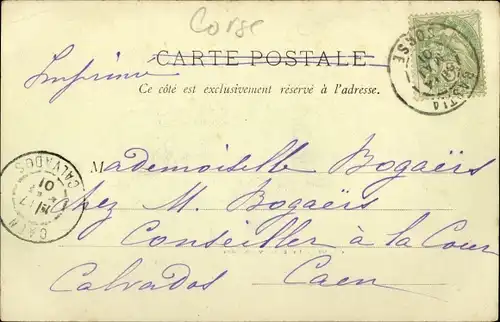 Corse
CARTE POSTALE
Imprimé
Ce côté est exclusivement réservé à l'adresse.
BASTIA
CORSE
Mademoiselle Bogaërs
chez M. Bogaërs
Conseiller à la Cour
Calvados Caen
CAEN
CALVADOS
01